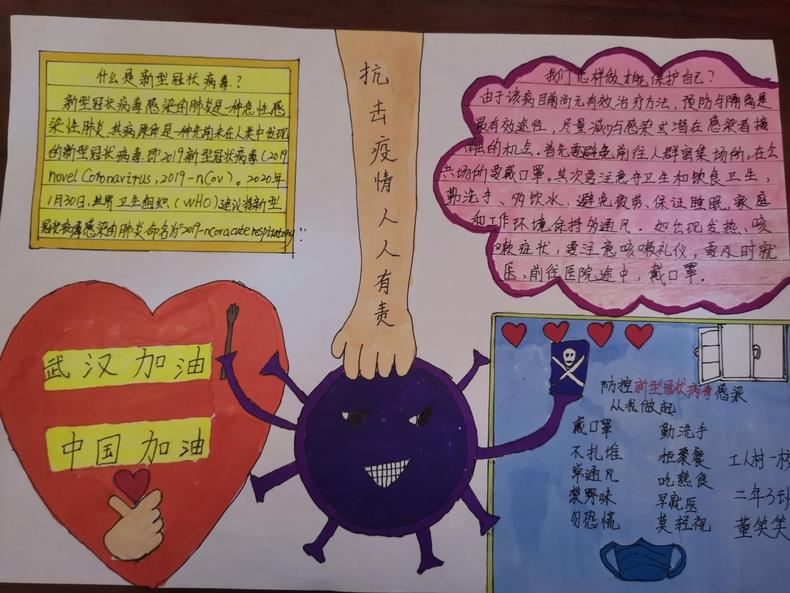 什么是新型冠状病毒？
新型冠状病毒感染的肺炎是一种急性感
染性肺炎,其病原体是一种先前未在人类中发现
的新型冠状病毒,即2019新型冠状病毒(2019
novel Coronavirus,2019-nCov)。2020年
1月30日,世界卫生组织(WHO)建议将新型
冠状病毒感染的肺炎命名为2019-ncoracute
抗击疫情人人有责
我们怎样做才能保护自己？
由于该病目前尚无有效治疗方法，预防与隔离是
最有效途径，尽量减少与感染或潜在感染者接
触的机点。首先要避免前往人群密集场所，在公
共场所要戴口罩。其次要注意手卫生和饮食卫生，
勤洗手、多饮水，避免疲劳、保证睡眠，家庭
和工作环境保持多通风。如出现发热、咳
嗽症状，要注意咳嗽礼仪，要及时就
医，前往医院途中，戴口罩.
武汉加油
中国加油
防控新型冠状病毒感染
从我做起
戴口罩 勤洗手
不扎堆 拒聚餐
常通风 吃熟食
禁野味 早就医
勿恐慌 莫轻视
工人村一校
二年3班
董笑笑